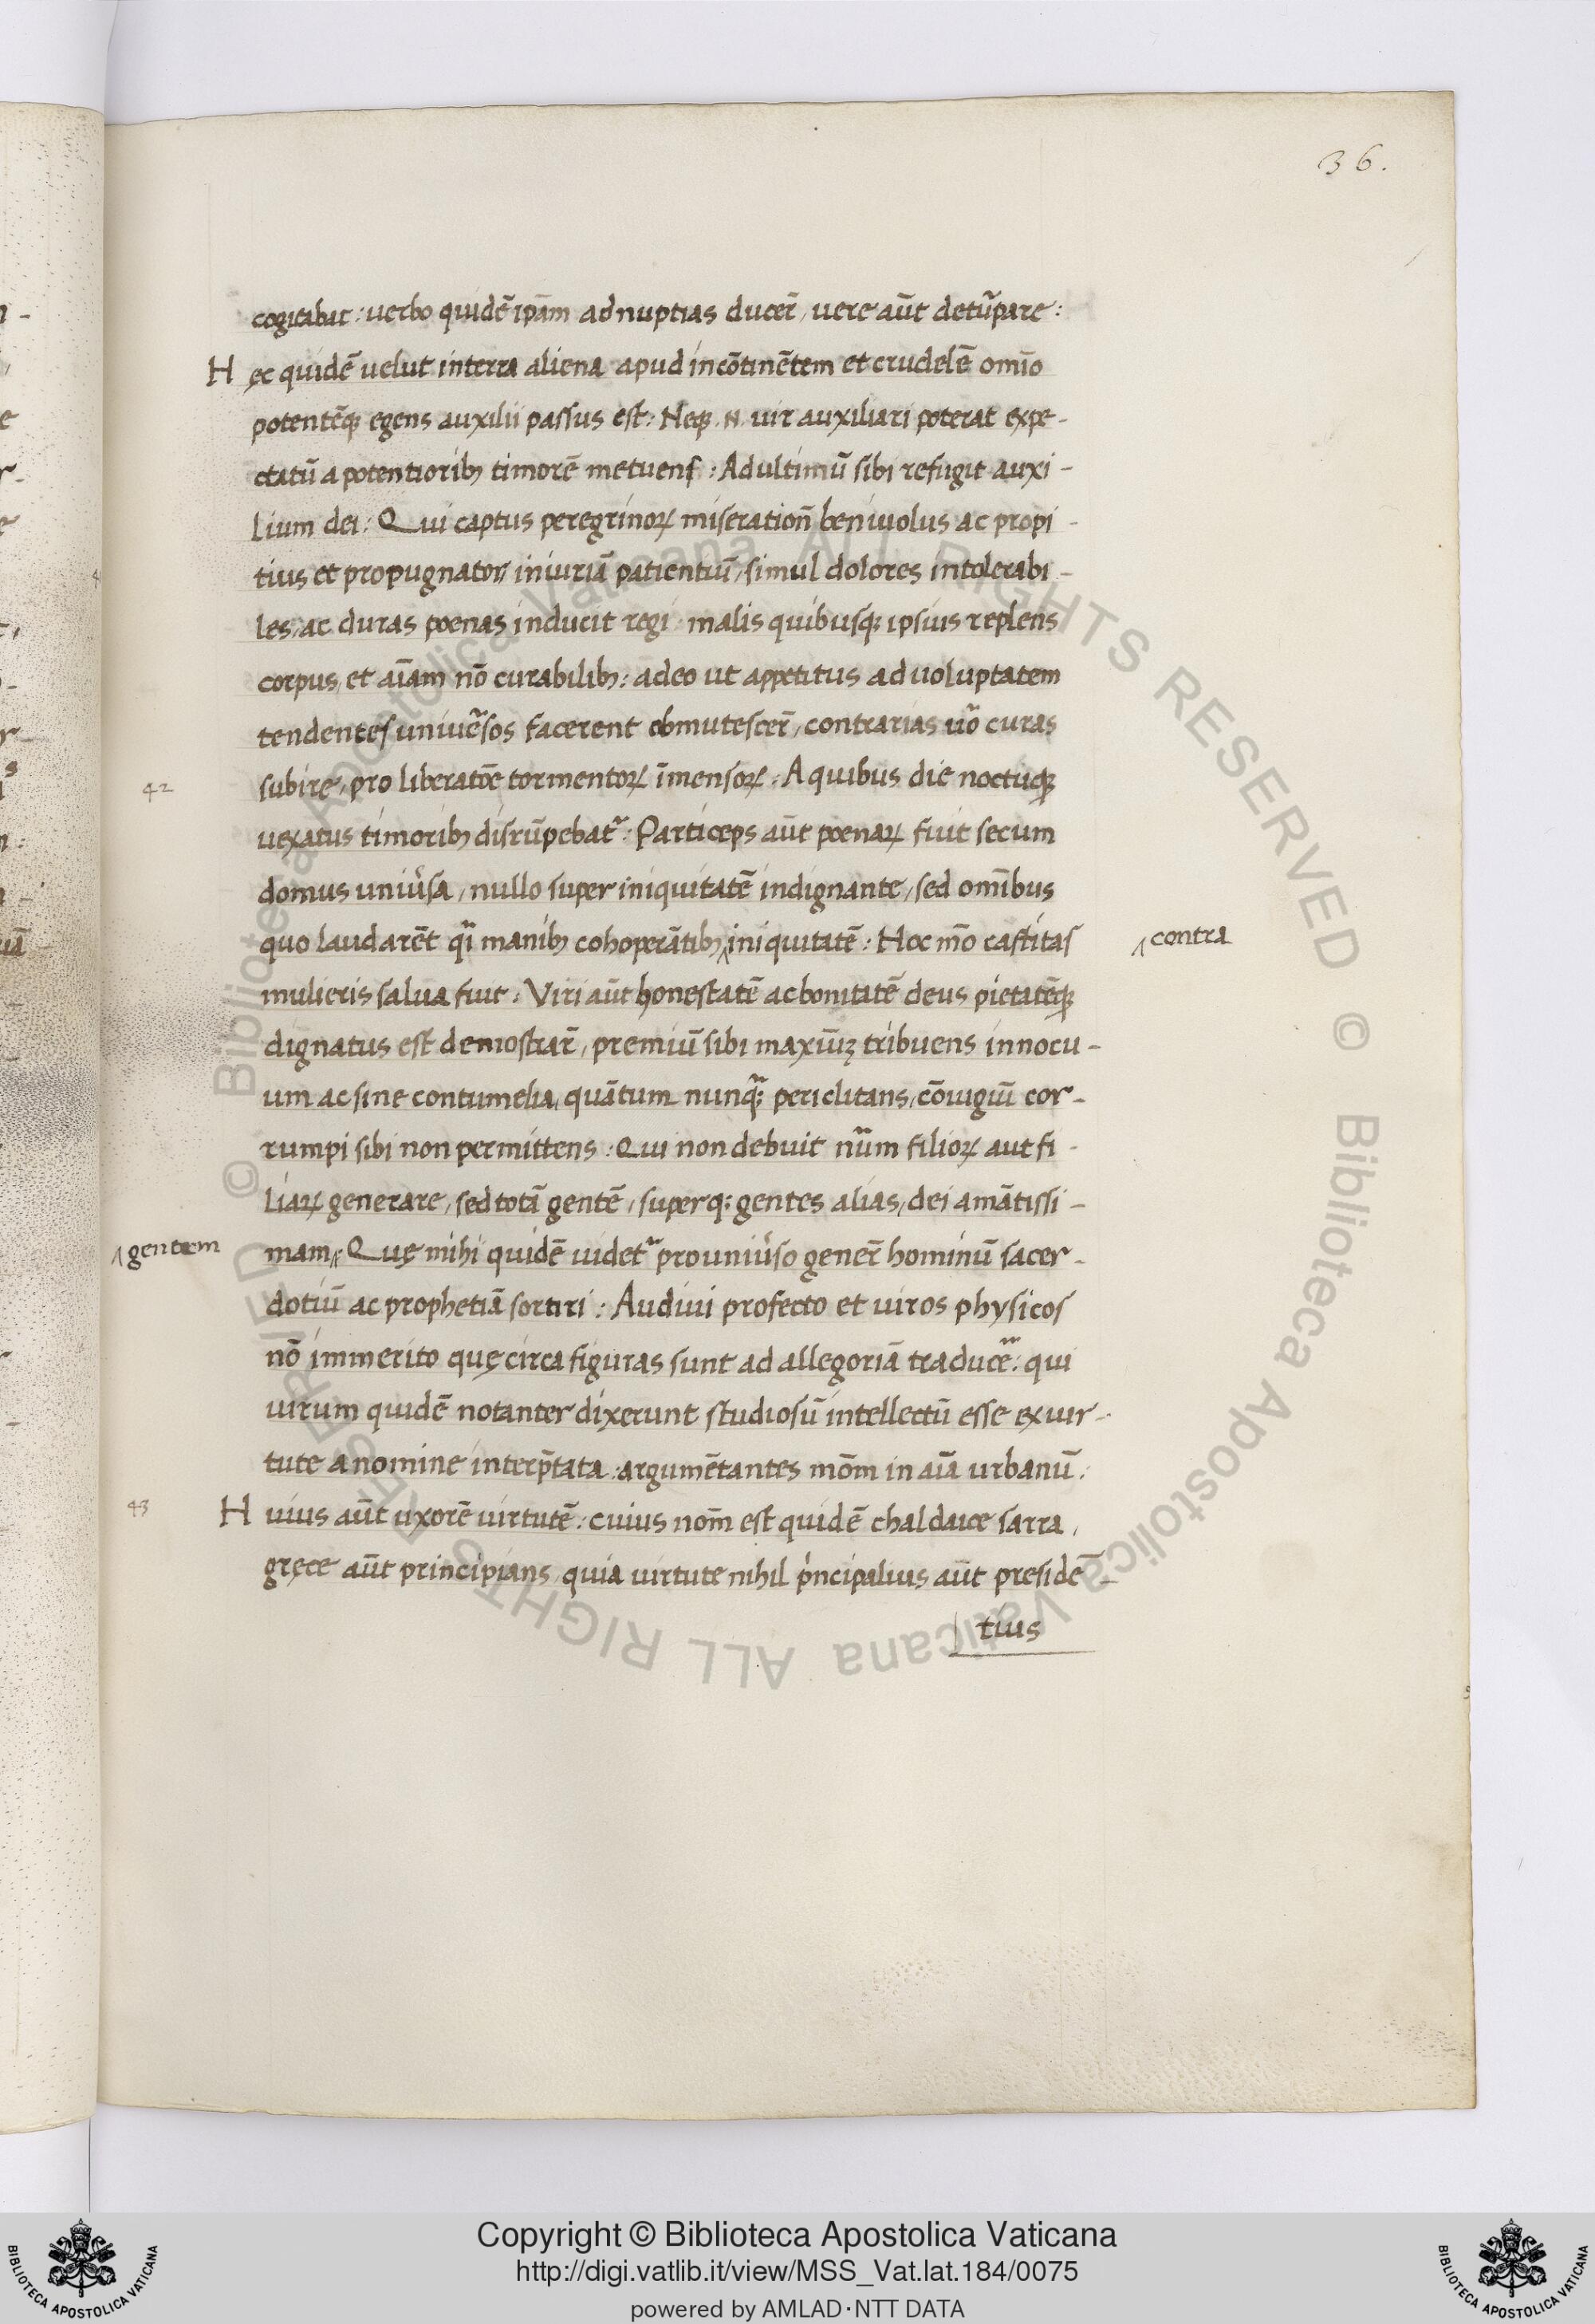 36.
cogitabat: uerbo quidē ipām ad nuptias ducer̄, uere aūt detūpare:
Hęc quidē uelut in terra aliena apud incōtinētem et crudelē omīo
potentēq; egens auxilii passus est: Neq; .N. uir auxiliari poterat expe-
ctatū a potentiorib; timorē metuens: Ad ultimū sibi refugit auxi-
lium dei: Qui captus peregrinoꝝ miseratioñ beniuolus ac propi-
tius et propugnator iniuriā patientiū, simul dolores intolerabi-
les, ac duras poenas inducit regi: malis quibusq; ipsius replens
corpus, et aīam nō curabilib;: adeo ut appetitus ad uoluptatem
tendentes uniūesos facerent obmutescer̄, contrarias ūo curas
42
subire, pro liberatōe tormentoꝝ īmensoꝝ: A quibus die noctuq;
uexatus timorib; disrūpebat̄: Particeps aūt poenaꝝ fuit secum
domus uniūsa, nullo super iniquitatē indignante, sed omībus
quo laudarēt q̄i manib; cohoperātib; ‸iniquitatē: Hoc mō castitas
‸contra
mulieris salua fuit: Viri aūt honestatē ac bonitatē deus pietatēq;
dignatus est demostrar̄, premiū sibi maxiūꝫ tribuens innocu-
um ac sine contumelia, quātum nunq̄; periclitans, cōiugiū cor-
rumpi sibi non permittens: Qui non debuit nūm filioꝝ aut fi-
liaꝝ generare, sed totā gentē, superq; gentes alias, dei amātissi-
‸gentem
mam‸: Quę mihi quidē uidet̄ pro uniūso gener̄ hominū sacer-
dotiū ac prophetiā sortiri: Audiui profecto et uiros physicos
nō immerito quę circa figuras sunt ad allegoriā traducē: qui
uirum quidē notanter dixerunt studiosū intellectū esse ex uir-
tute a nomine interp̄tata: argumētantes mōm in aīa urbanū:
43
Huius aūt uxorē uirtutē: cuius nom̄ est quidē chaldaice sarra,
gręce aūt principians, quia uirtute nihil p̄ncipalius aūt presidē-
tius
Copyright © Biblioteca Apostolica Vaticana
http://digi.vatlib.it/view/MSS_Vat.lat.184/0075
powered by AMLAD·NTT DATA